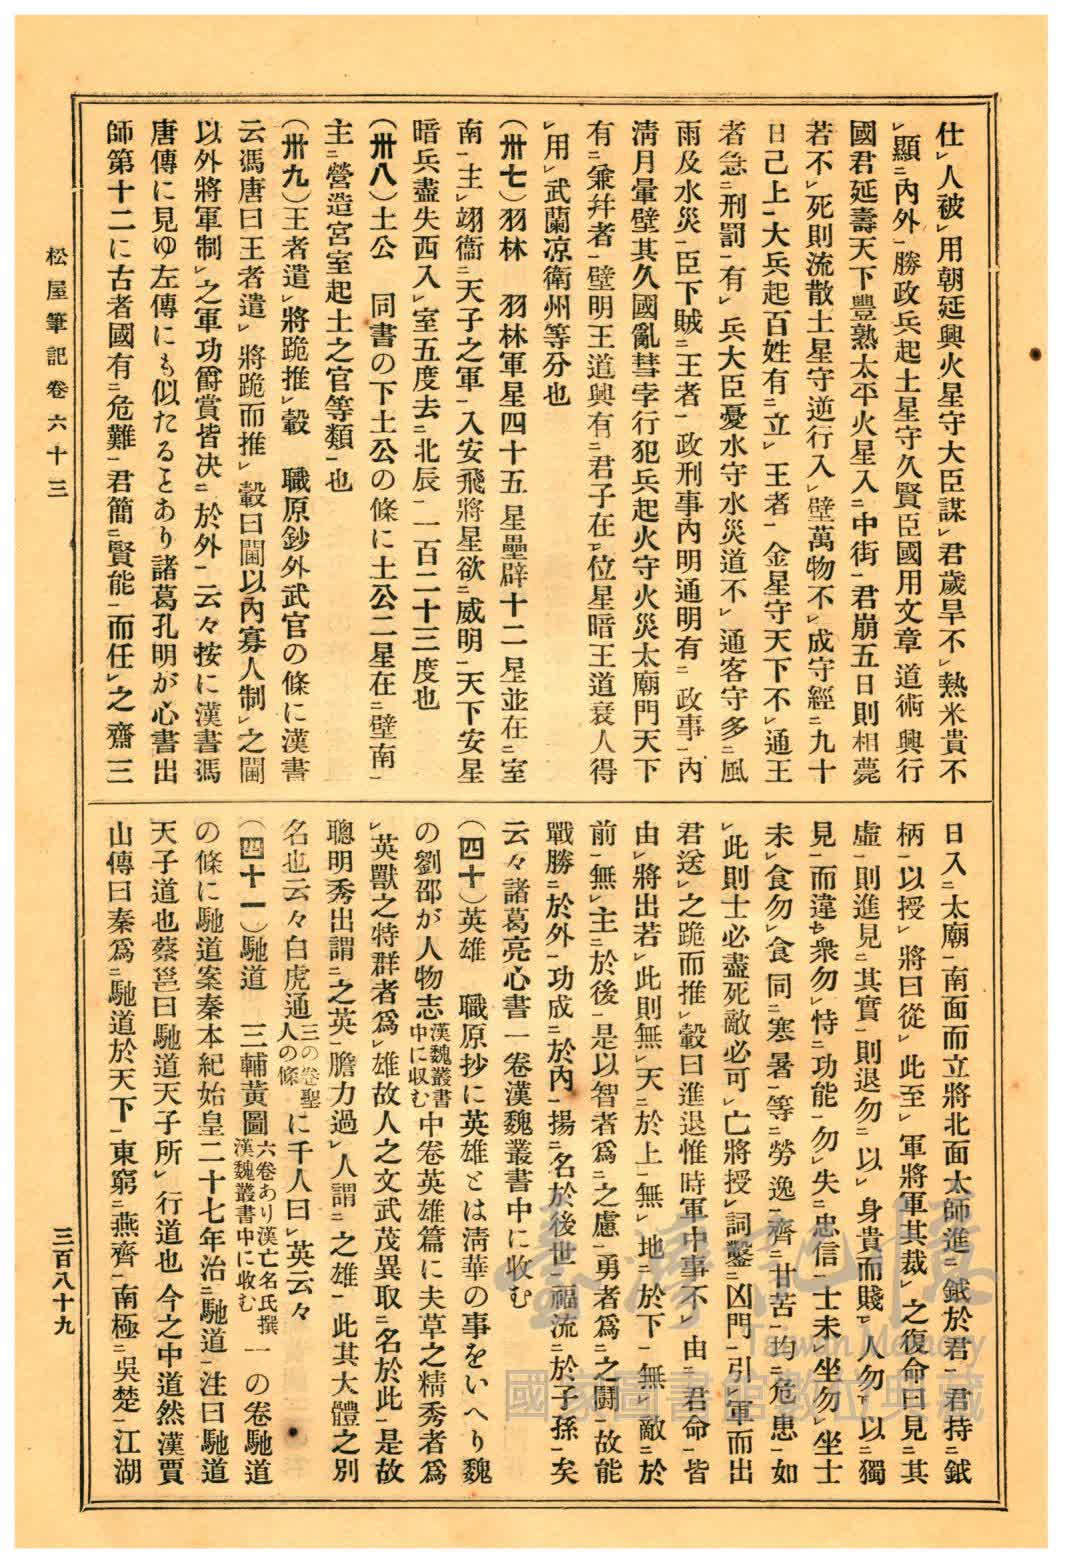 仕㆑人被㆑用朝廷興火星守大臣謀㆑君歲旱不㆑熱米貴不
㆑顯㆓內外㆒勝政兵起土星守久賢臣國用文章道術興行
國君延壽天下豐熟太平火星入㆓中街㆒君崩五日則相薨
若不㆑死則流散土星守逆行入㆑壁萬物不㆑成守經㆓九十
日己上㆒大兵起百姓有㆓立㆑王者㆒金星守天下不㆑通王
者急㆓刑罰㆒有㆑兵大臣憂水守水災道不㆑通客守多㆓風
雨及水災㆒臣下賊㆓王者㆒政刑事內明通明有㆓政事㆒內
淸月暈壁其久國亂彗孛行犯兵起火守火災太廟門天下
有㆓兼幷者㆒壁明王道興有㆓君子在㆑位星暗王道衰人得
㆑用㆑武蘭凉衛州等分也
（卅七）羽林　羽林軍星四十五星壘辟十二星並在㆓室
南㆒主㆑翊衞㆓天子之軍㆒入安飛將星欲㆓威明㆒天下安星
暗兵盡失西入㆑室五度去㆓北辰㆒一百二十三度也
（卅八）土公　同書の下土公の條に土公二星在㆓壁南㆒
主㆓營造宮室起土之官等類㆒也
（卅九）王者遣㆑將跪推㆑轂　職原鈔外武官の條に漢書
云馮唐曰王者遣㆑將跪而推㆑轂曰閫以內寡人制㆑之閫
以外將軍制㆑之軍功爵賞皆决㆓於外㆒云々按に漢書馮
唐傳に見ゆ左傳にも似たるとあり諸葛孔明が心書出
師第十二に古者國有㆓危難㆒君簡㆓賢能㆒而任㆑之齋三
日入㆓太廟㆒南面而立將北面太師進㆓鉞於君㆒君持㆓鉞
柄㆒以授㆑將曰從㆑此至㆑軍將軍其裁㆑之復命曰見㆓其
虛㆒則進見㆓其實㆒則退勿㆘以㆑身貴而賤㆖人勿㆘以㆓獨
見㆒而違㆖衆勿㆑恃㆓功能㆒勿㆑失㆓忠信㆒士未㆑坐勿㆑坐士
未㆑食勿㆑食同㆓寒暑㆒等㆓勞逸㆒齊㆓甘苦㆒均㆓危患㆒如
㆑此則士必盡死敵必可㆑亡將授㆑詞鑿㆓凶門㆒引㆑軍而出
君送㆑之跪而推㆑轂曰進退惟時軍中事不㆑由㆓君命㆒皆
由㆑將出若㆑此則無㆑天㆓於上㆒無㆑地㆓於下㆒無㆑敵㆓於
前㆒無㆑主㆓於後㆒是以智者爲㆓之慮㆒勇者爲㆓之鬪㆒故能
戰勝㆓於外㆒功成㆓於內㆒揚㆓名於後世㆒福流㆓於子孫㆒矣
云々諸葛亮心書一卷漢魏叢書中に收む
（四十）英雄　職原抄に英雄とは淸華の事をいへり魏
の劉邵が人物志漢魏叢書中に収む中卷英雄篇に夫草之精秀者爲
㆑英獸之特群者爲㆑雄故人之文武茂異取㆓名於此㆒是故
聰明秀出謂㆓之英㆒膽力過㆑人謂㆓之雄㆒此其大體之別
名也云々白虎通三の卷聖人の條に千人曰㆑英云々
（四十一）馳道　三輔黃圖六卷あり漢亡名氏撰漢魏叢書中に收む一の卷馳道
の條に馳道案秦本紀始皇二十七年治㆓馳道㆒注曰馳道
天子道也蔡邕曰馳道天子所㆑行道也今之中道然漢賈
山傳曰秦爲㆓馳道於天下㆒東窮㆓燕齊㆒南極㆓吳楚㆒江湖
松屋筆記卷六十三
三百八十九
臺灣記憶
Taiwan Memory
國家圖書館數位典藏